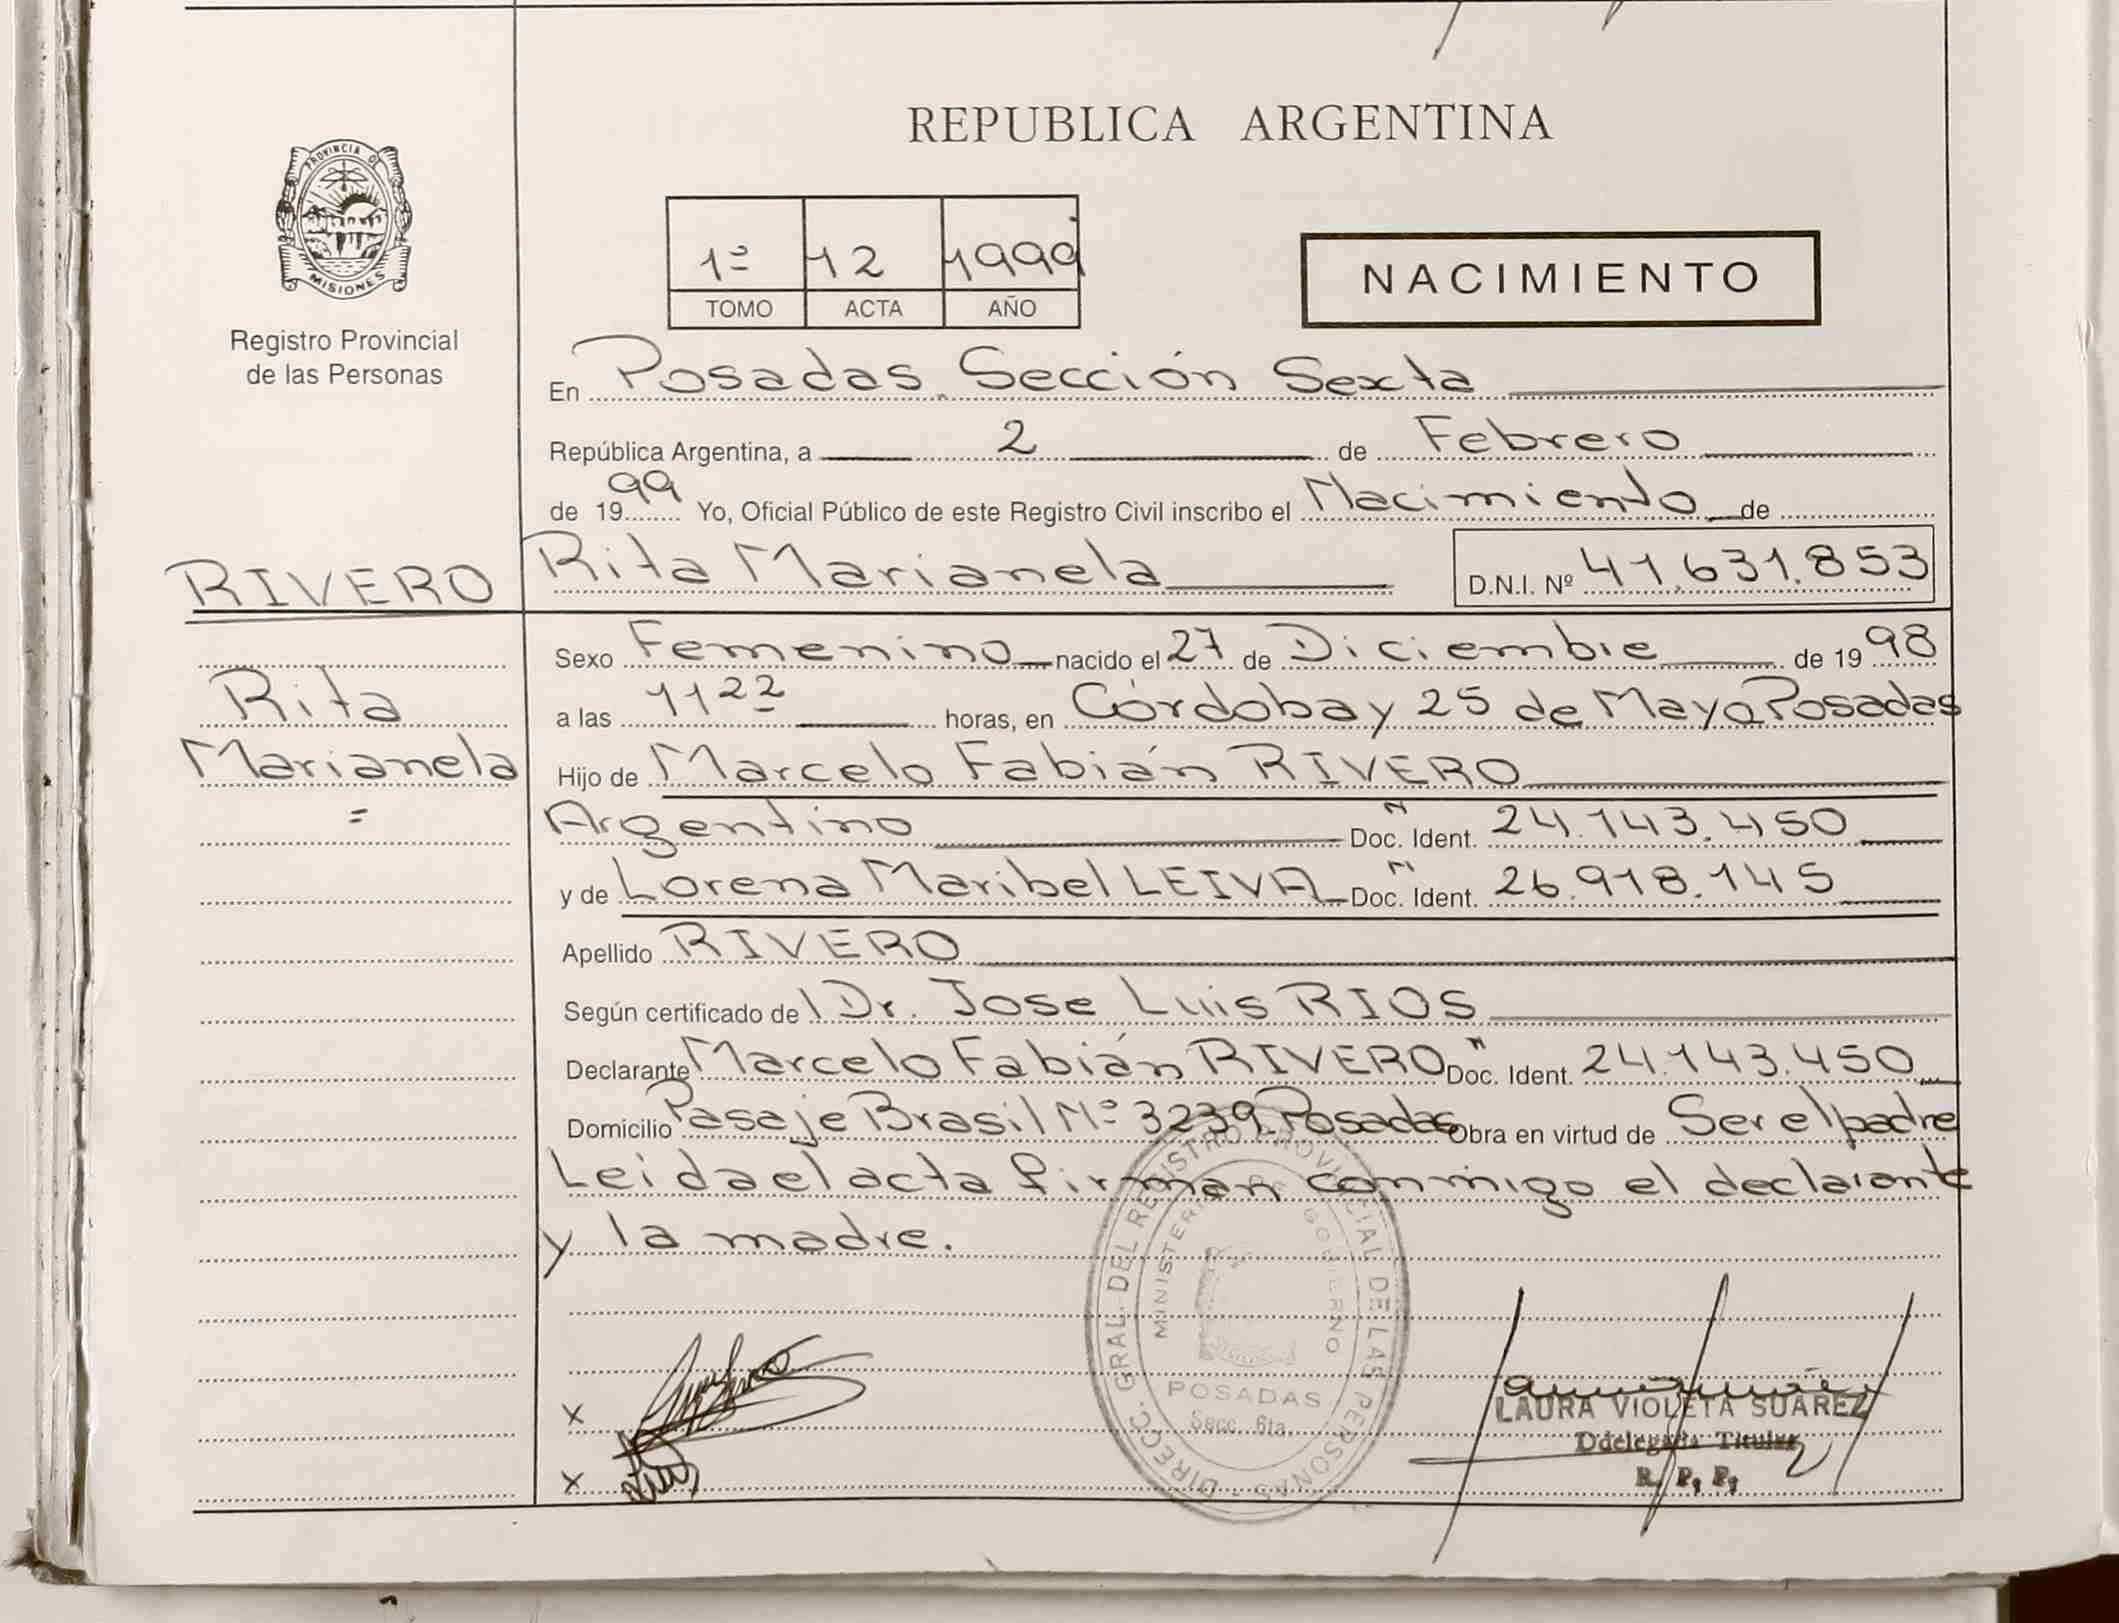 REPUBLICA ARGENTINA
PROVINCIA DE
MISIONES
Registro Provincial
de las Personas
1º 12 1999
TOMO ACTA AÑO
NACIMIENTO
En Posadas Sección Sexta
República Argentina, a 2 de Febrero
de 1999 Yo, Oficial Público de este Registro Civil inscribo el Nacimiento de
RIVERO Rita Marianela D.N.I. Nº 41.631.853
Sexo Femenino nacido el 27 de Diciembre de 1998
Rita a las 11 22 horas, en Córdoba y 25 de Mayo Posadas
Marianela Hijo de Marcelo Fabián RIVERO
= Argentino Doc. Ident. N 24.143.450
y de Lorena Maribel LEIVA Doc. Ident. N 26.918.145
Apellido RIVERO
Según certificado de l Dr. Jose Luis RIOS
Declarante Marcelo Fabián RIVERO Doc. Ident. N 24.143.450
Domicilio Pasaje Brasil Nº 3239 Posadas Obra en virtud de Ser el padre
Leida el acta firman conmigo el declarante
y la madre.
DIRECC. GRAL. DEL REGISTRO PROVINCIAL DE LAS PERSONAS
MINISTERIO GOBIERNO
POSADAS
Secc. 6ta.
X
X
LAURA VIOLETA SUAREZ
Ddelegada Titular
R. P. P.